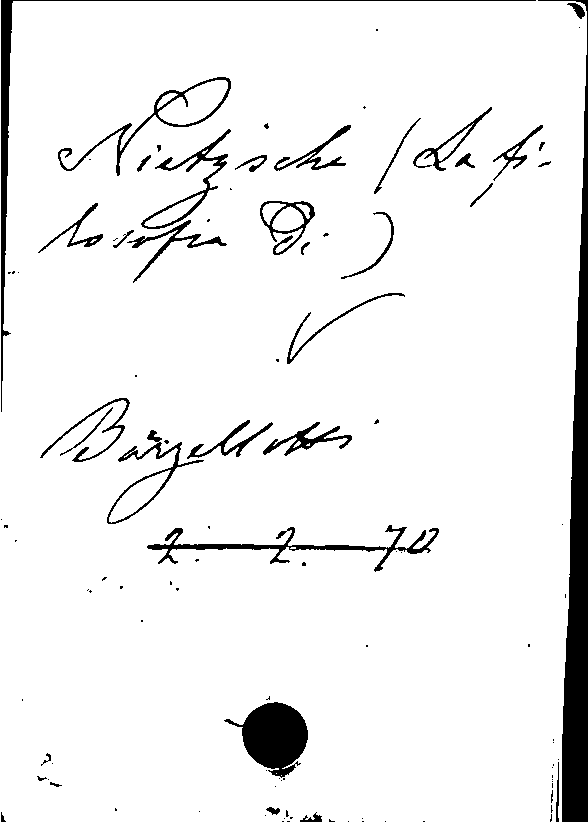 Nietzsche (La fi-
losofia di)
Barzellotti
2. 2. 70